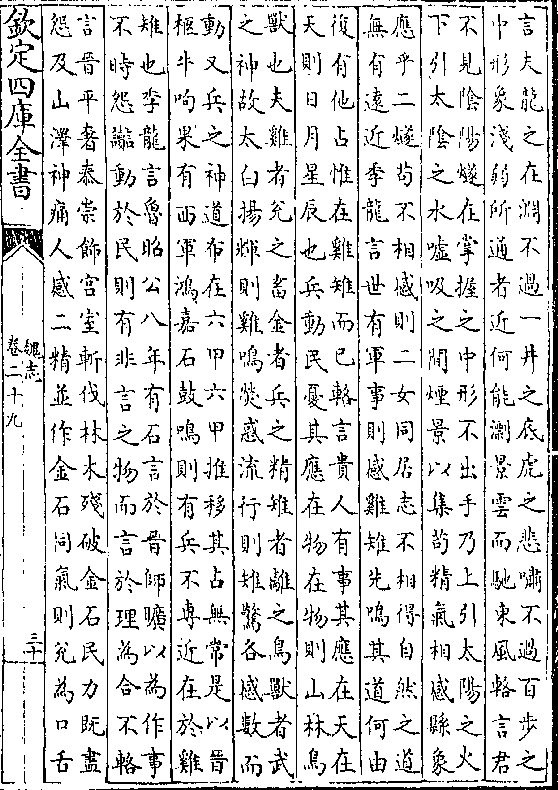 言夫龍之在淵不過一井之底虎之悲嘯不過百步之
中形象淺弱所通者近何能漂景雲而馳東風輅言君
不見陰陽燧在掌握之中形不出手乃上引太陽之火
下引太陰之水噓吸之間煙景以集苟精氣相感縣象
應乎二燧苟不相感則二女同居志不相得自然之道
無有遠近季龍言世有軍事則感雞雉先鳴其道何由
復有他占惟在雞雉而已輅言貴人有事其應在天在
天則日月星辰也兵動民憂其應在物在物則山林鳥
獸也夫雞者兌之畜金者兵之精雉者離之鳥獸者武
之神故太白揚輝則雞鳴熒惑流行則雉驚各感數而
動又兵之神道布在六甲六甲推移其占無常是以晉
柩牛呴果有西軍鴻嘉石鼓鳴則有兵不專近在於雞
雉也季龍言魯昭公八年有石言於晉師曠以為作事
不時怨讟動於民則有非言之物而言於理為合不輅
言晉平奢泰崇飾宮室斬伐林木殘破金石民力既盡
怨及山澤神痛人感二精並作金石同氣則兌為口舌
欽定四庫全書
魏志
卷二十九
三十